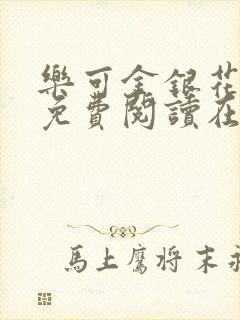 樂可金銀花
免費閱讀在
馬上鷹将末